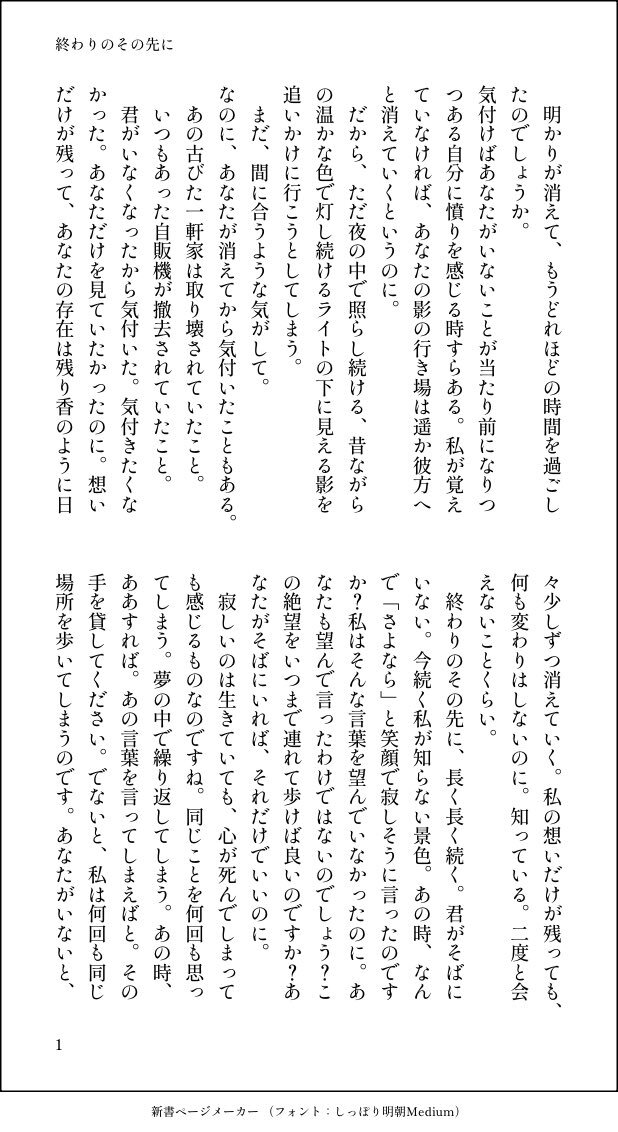 終わりのその先に
　明かりが消えて、もうどれほどの時間を過ごし
たのでしょうか。
気付けばあなたがいないことが当たり前になりつ
つある自分に憤りを感じる時すらある。私が覚え
ていなければ、あなたの影の行き場は遥か彼方へ
と消えていくというのに。
　だから、ただ夜の中で照らし続ける、昔ながら
の温かな色で灯し続けるライトの下に見える影を
追いかけに行こうとしてしまう。
　まだ、間に合うような気がして。
なのに、あなたが消えてから気付いたこともある。
　あの古びた一軒家は取り壊されていたこと。
　いつもあった自販機が撤去されていたこと。
　君がいなくなったから気付いた。気付きたくな
かった。あなただけを見ていたかったのに。想い
だけが残って、あなたの存在は残り香のように日
々少しずつ消えていく。私の想いだけが残っても、
何も変わりはしないのに。知っている。二度と会
えないことくらい。
　終わりのその先に、長く長く続く。君がそばに
いない。今続く私が知らない景色。あの時、なん
で「さよなら」と笑顔で寂しそうに言ったのです
か？私はそんな言葉を望んでいなかったのに。あ
なたも望んで言ったわけではないのでしょう？こ
の絶望をいつまで連れて歩けば良いのですか？あ
なたがそばにいれば、それだけでいいのに。
　寂しいのは生きていても、心が死んでしまって
も感じるものなのですね。同じことを何回も思っ
てしまう。夢の中で繰り返してしまう。あの時、
ああすれば。あの言葉を言ってしまえばと。その
手を貸してください。でないと、私は何回も同じ
場所を歩いてしまうのです。あなたがいないと、
1
新書ページメーカー（フォント：しっぽり明朝Medium）